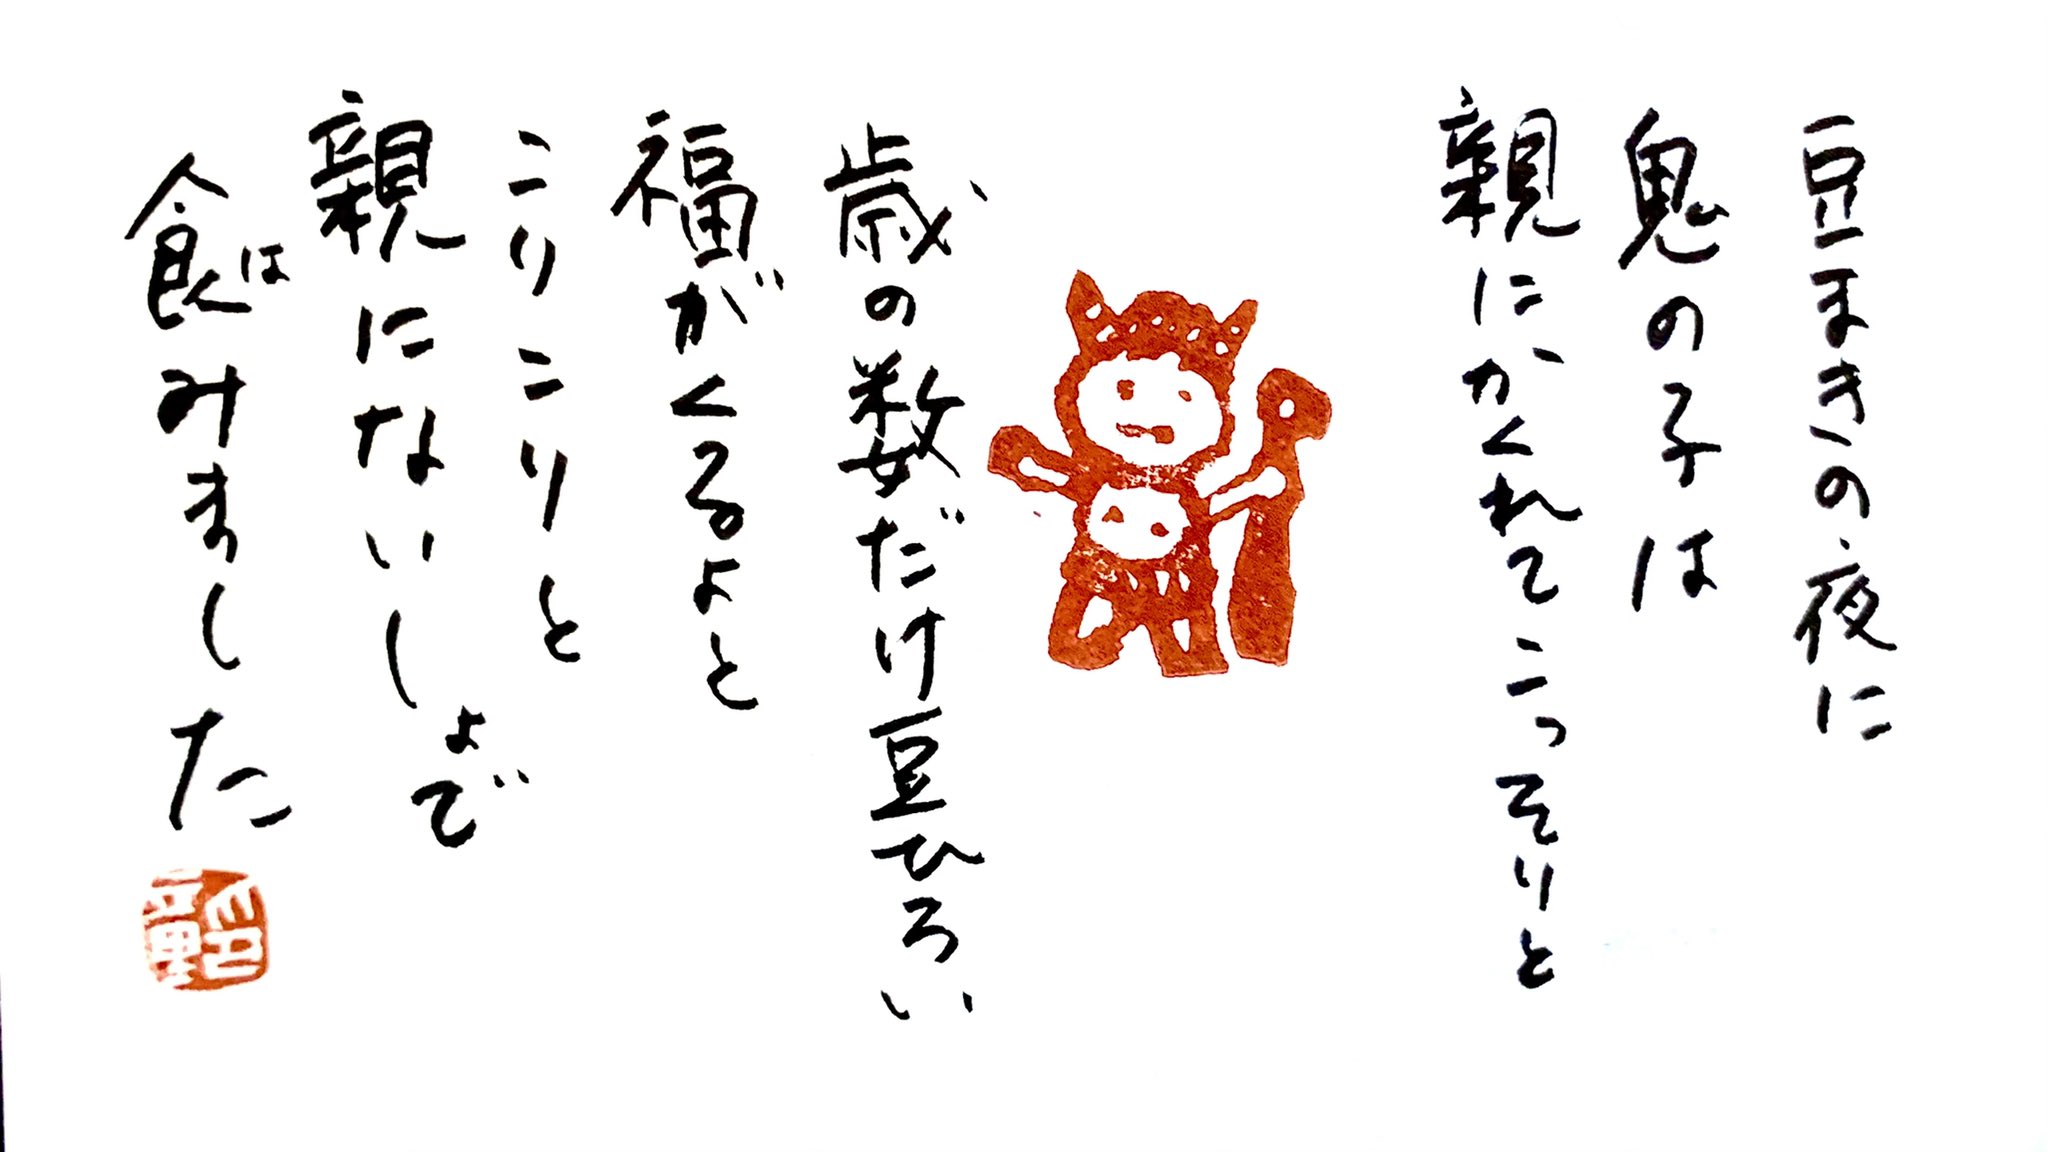 豆まきの夜に
鬼の子は
親にかくれてこっそりと
歳の数だけ豆ひろい
福がくるよと
こりこりと
親にないしょで
食はみました